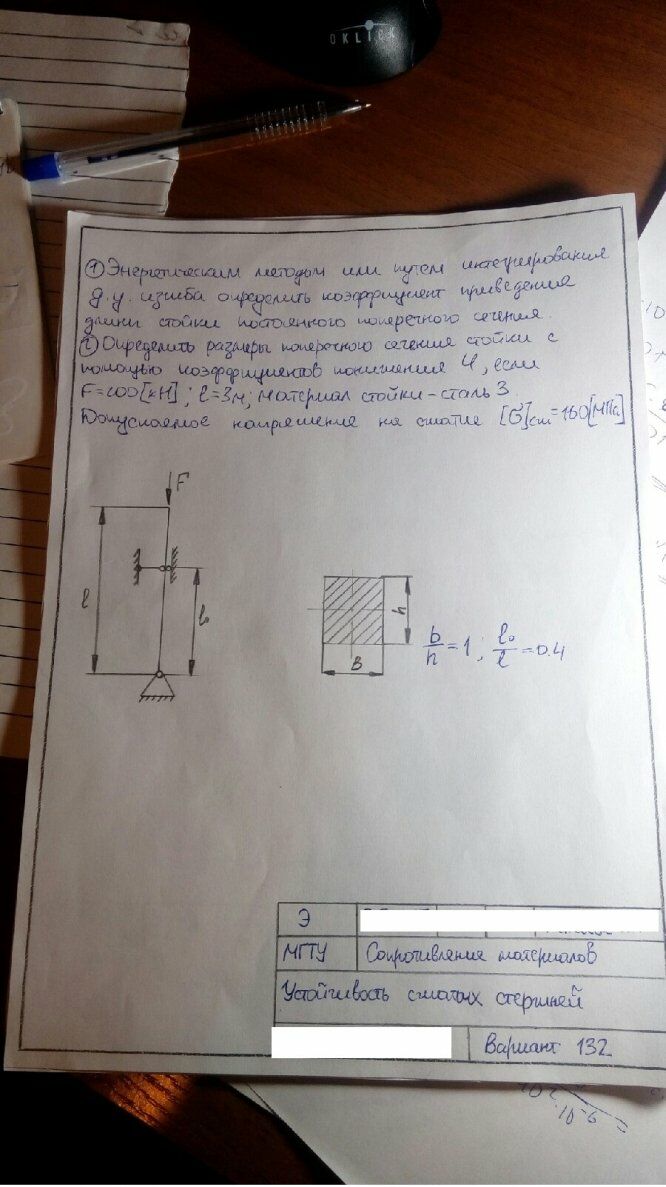 OKLICK
① Энергетическим методом или путем интегрирования
д.у. изгиба определить коэффициент приведения
длины стойки постоянного поперечного сечения.
② Определить размеры поперечного сечения стойки с
помощью коэффициентов понижения φ, если
F=200[кН]; l=3м; материал стойки-сталь 3.
Допускаемое напряжение на сжатие [σ]сж=160[МПа]
F
l
l₀
h
b/h=1; l₀/l=0.4
B
Э
МГТУ Сопротивление материалов
Устойчивость сжатых стержней
Вариант 132